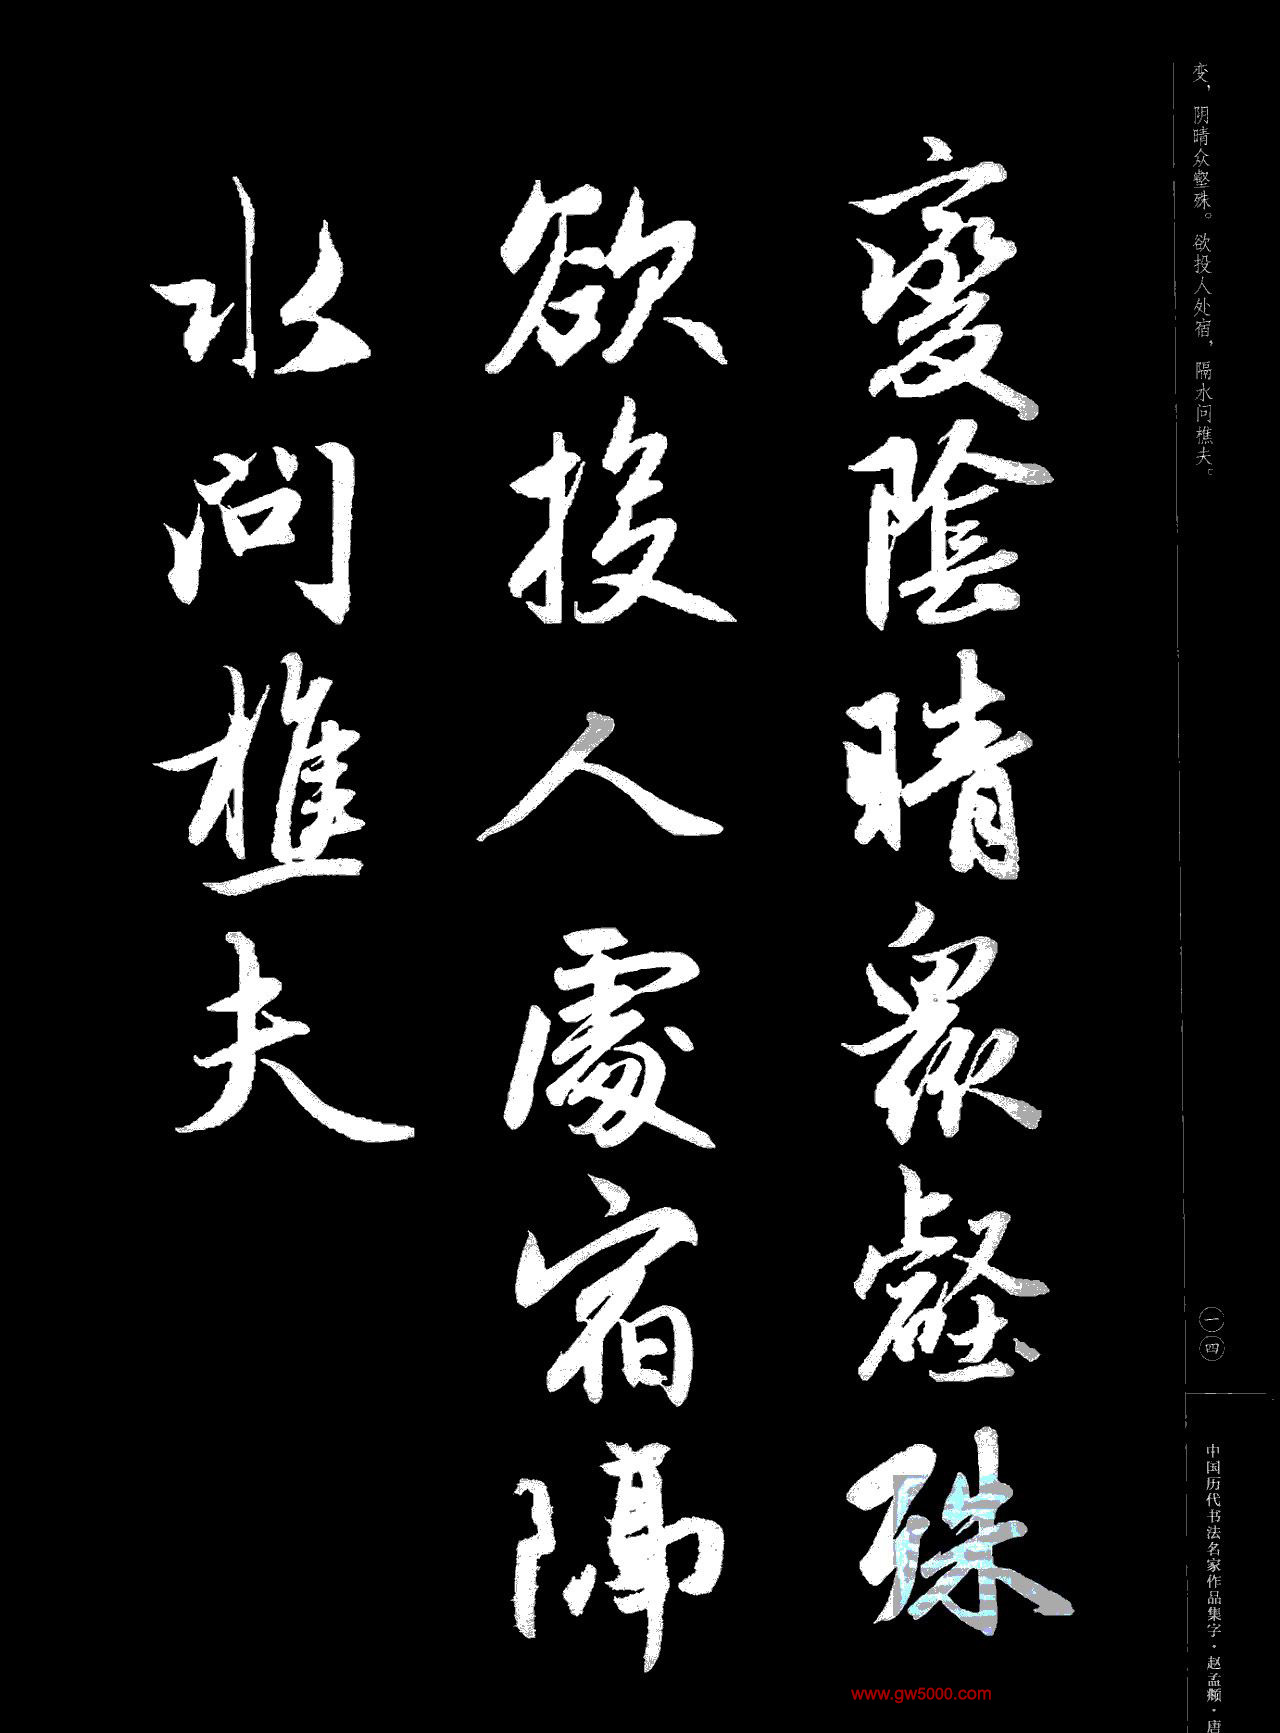 变，阴晴众壑殊。欲投人处宿，隔水问樵夫。
變陰晴衆壑殊
欲投人處宿隔
水問樵夫
一四
中国历代书法名家作品集字·赵孟頫·唐
www.gw5000.com